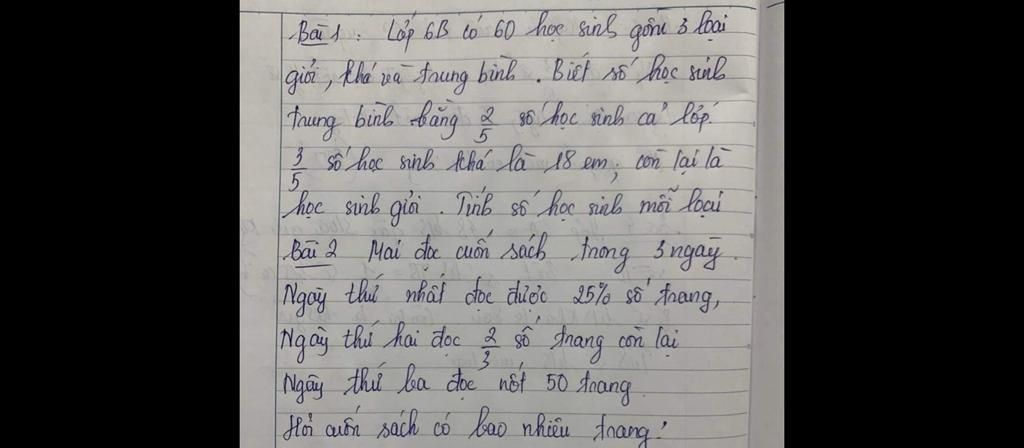 Bài 1 : Lớp 6B có 60 học sinh gồm 3 loại
giỏi, khá và trung bình. Biết số học sinh
trung bình bằng 2/5 số học sinh cả lớp.
3/5 số học sinh khá là 18 em, còn lại là
học sinh giỏi. Tính số học sinh mỗi loại
Bài 2 Mai đọc cuốn sách trong 3 ngày.
Ngày thứ nhất đọc được 25% số trang,
Ngày thứ hai đọc 2/3 số trang còn lại
Ngày thứ ba đọc nốt 50 trang
Hỏi cuốn sách có bao nhiêu trang?